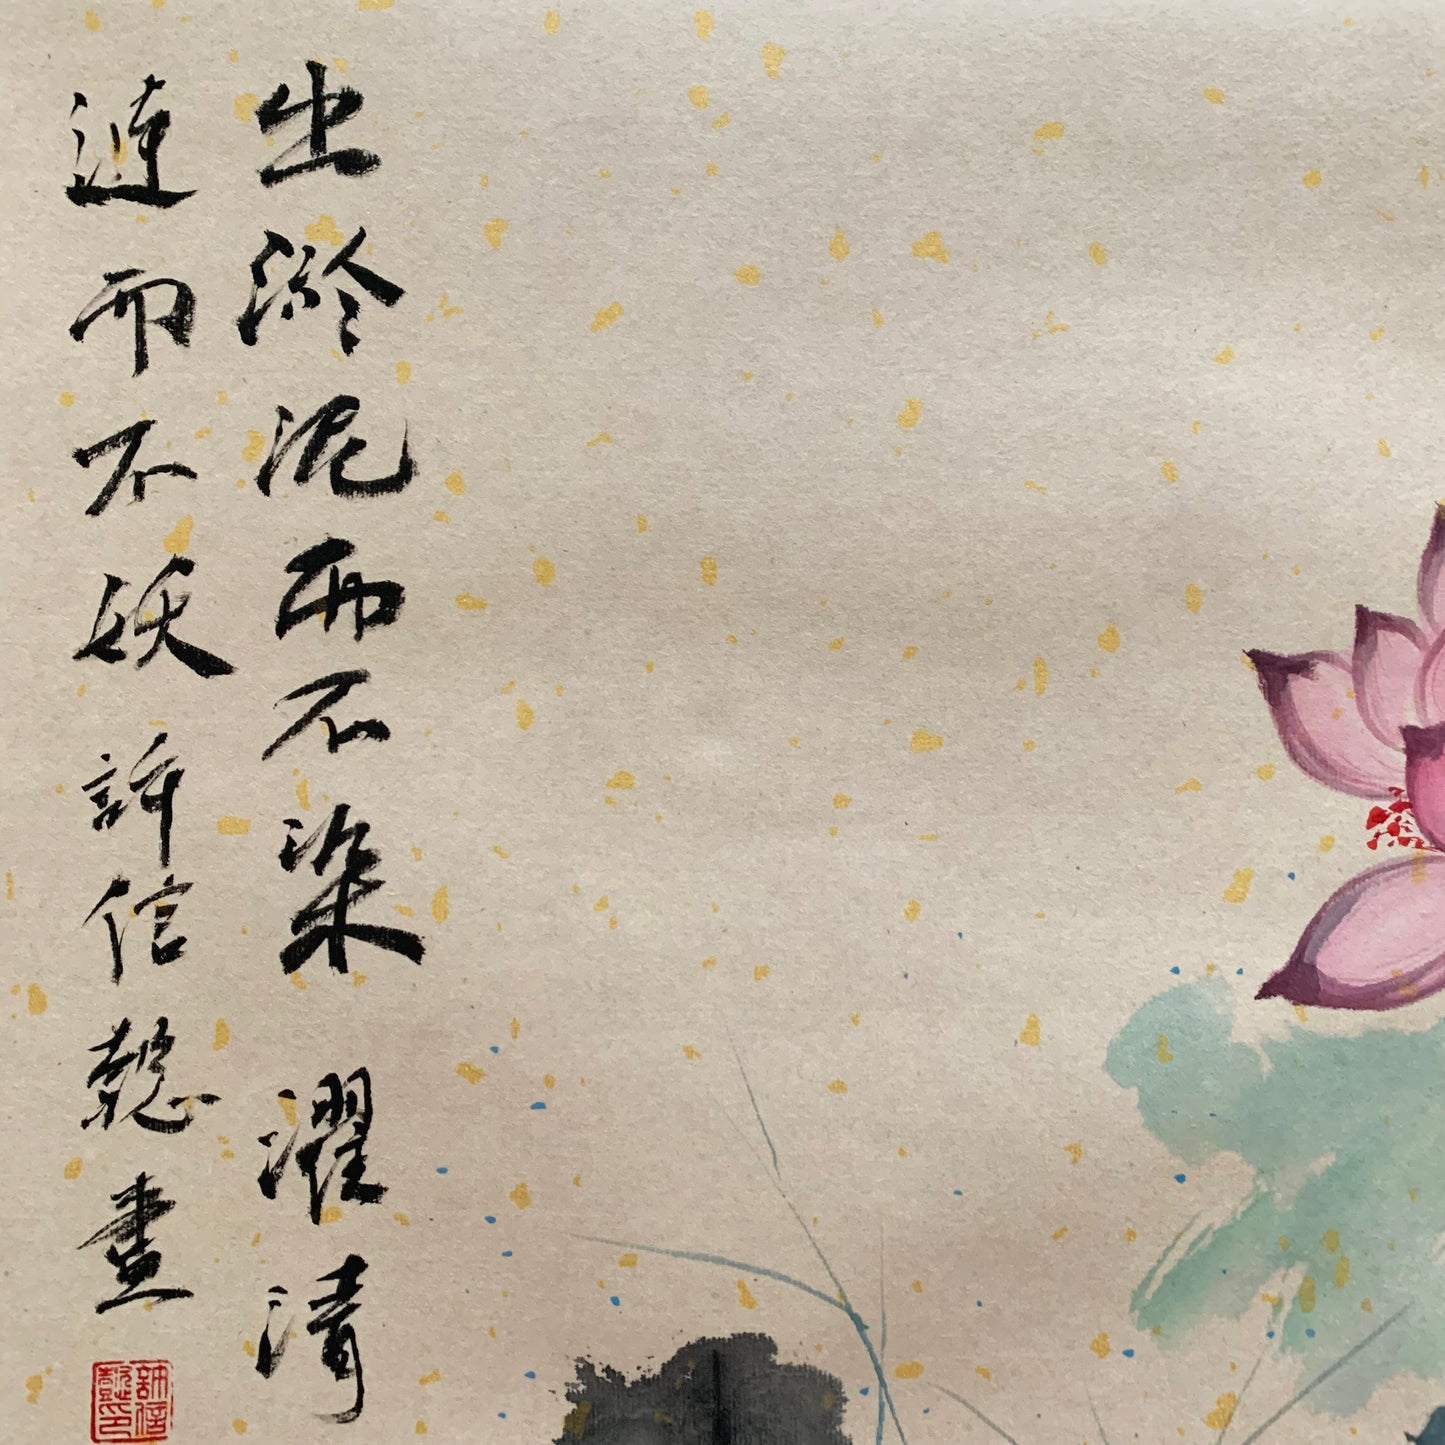 出淤泥而不染 濯清
漣而不妖 許信懿畫
許信
懿印